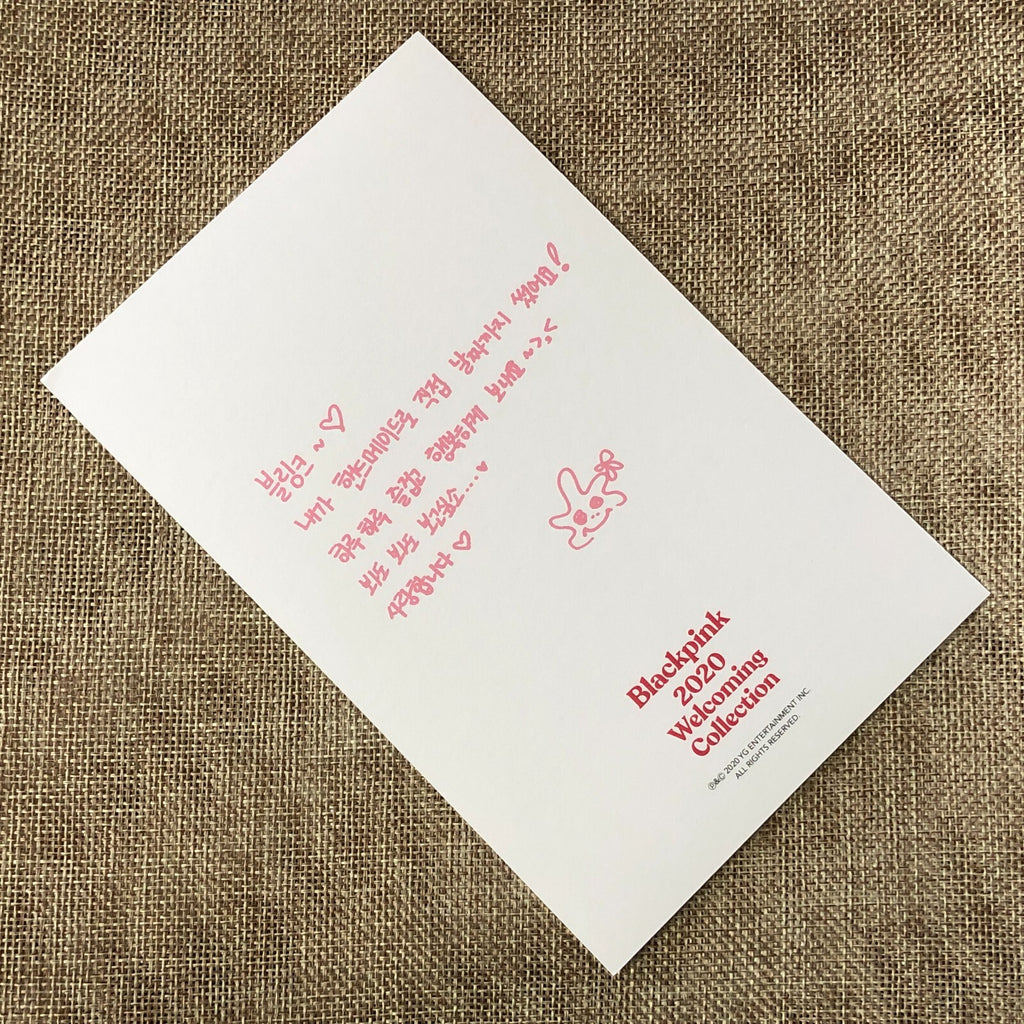 블링크~♡
내가 핸드메이드로 직접 날짜까지 썼어요!
하루하루 즐겁고 행복하게 보내요~>,<
뾰뾰뾰
사랑합니다♡
Blackpink
2020
Welcoming
Collection
℗&© 2020 YG ENTERTAINMENT INC.
ALL RIGHTS RESERVED.